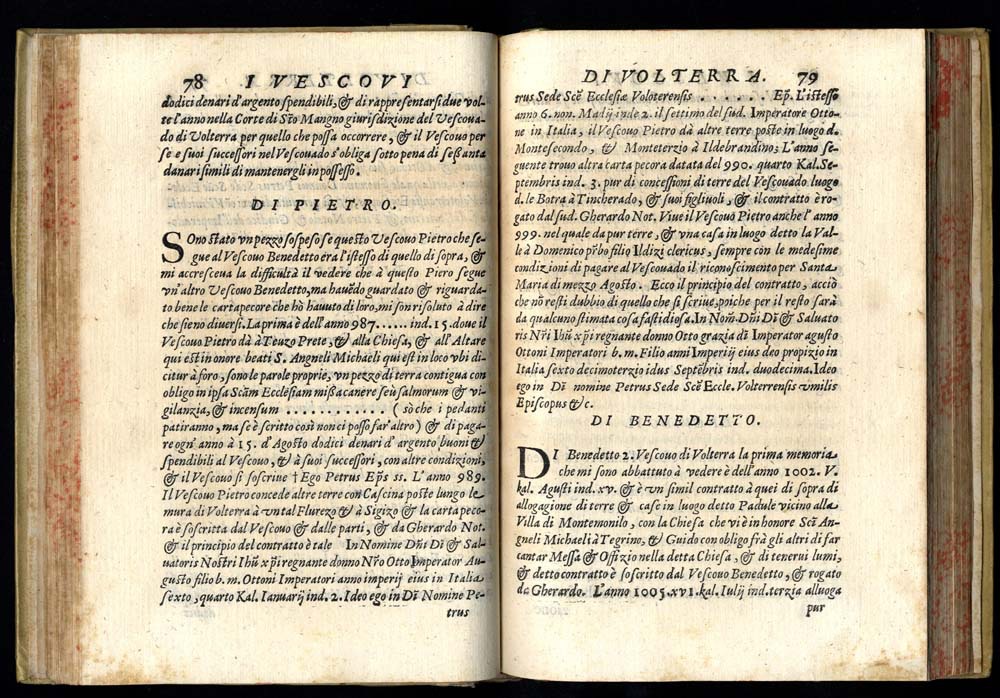 78 I VESCOVI
dodici denari d'argento spendibili, & di rappresentarsi due vol-
te l'anno nella Corte di Sto Mangno giurisdizione del Vescoua-
do di Volterra per quello che possa occorrere, & il Vescouo per
se e suoi successori nel Vescouado s'obliga sotto pena di sessanta
danari simili di mantenergli in possesso.
DI PIETRO.
SOno stato vn pezzo sospeso se questo Vescouo Pietro che se-
gue al Vescouo Benedetto era l'istesso di quello di sopra, &
mi accresceua la difficultà il vedere che à questo Piero segue
vn'altro Vescouo Benedetto, ma hauēdo guardato & riguarda-
to bene le cartapecore che hò hauuto di loro, mi son risoluto à dire
che sieno diuersi. La prima è dell'anno 987...... ind. 15. doue il
Vescouo Pietro dà à Teuzo Prete, & alla Chiesa, & all'Altare
qui est in onore beati S. Angneli Michaeli qui est in loco vbi di-
citur à foro, sono le parole proprie, vn pezzo di terra contigua con
obligo in ipsa Scām Ecclesiam missa canere seù salmorum & vi-
gilanzia, & incensum ............ ( sò che i pedanti
patiranno, ma se è scritto così non ci posso far'altro) & di paga-
re ogn'anno à 15. d'Agosto dodici denari d'argento buoni &
spendibili al Vescouo, & à suoi successori, con altre condizioni,
& il Vescouo si soscriue † Ego Petrus Eps ss. L'anno 989.
Il Vescouo Pietro concede altre terre con Cascina poste lungo le
mura di Volterra à vntal Flurezo & à Sigizo & la carta peco-
ra è soscritta dal Vescouo & dalle parti, & da Gherardo Not.
& il principio del contratto è tale In Nomine Dn̄i Dī & Sal-
uatoris Nostri Ihū xp̄i regnante donno Nr̄o Otto Imperator Au-
gusto filio b. m. Ottoni Imperatori anno imperij eius in Italia
sexto, quarto Kal. Ianuarij ind. 2. Ideo ego in Dī Nomine Pe-
trus
DI VOLTERRA. 79
trus Sede Scē Ecclesiæ Voloterensis ...... Ep̄. L'istesso
anno 6. non. Madij inde 2. il settimo del sud. Imperatore Otto-
ne in Italia, il Vescouo Pietro dà altre terre poste in luogo d.
Montesecondo, & Monteterzio à Ildebrandino; L'anno se-
guente trouo altra carta pecora datata del 990. quarto Kal. Se-
ptembris ind. 3. pur di concessioni di terre del Vescouado luogo
d. le Botra à Tincherado, & suoi figliuoli, & il contratto è ro-
gato dal sud. Gherardo Not. Viue il Vescouo Pietro anche l'anno
999. nel quale da pur terre, & vna casa in luogo detto la Val-
le à Domenico pr̄bo filio Ildizi clericus, sempre con le medesime
condizioni di pagare al Vescouado il riconoscimento per Santa
Maria di mezzo Agosto. Ecco il principio del contratto, acciò
che nō resti dubbio di quello che si scriue, poiche per il resto sarà
da qualcuno stimata cosa fastidiosa. In Nom̄. Dn̄i Dī & Saluato
ris Nr̄i Ihū xp̄i regnante donno Otto grazia dī Imperator agusto
Ottoni Imperatori b. m. Filio anni Imperij eius deo propizio in
Italia sexto decimoterzio idus Septēbris ind. duodecima. Ideo
ego in Dī nomine Petrus Sede Scē Eccle. Volterrensis vmilis
Episcopus &c.
DI BENEDETTO.
DI Benedetto 2. Vescouo di Volterra la prima memoria
che mi sono abbattuto à vedere è dell'anno 1002. V.
kal. Agusti ind. xv. & è vn simil contratto à quei di sopra di
allogagione di terre & case in luogo detto Padule vicino alla
Villa di Montemonilo, con la Chiesa che vi è in honore Scī An-
gneli Michaeli à Tegrino, & Guido con obligo frà gli altri di far
cantar Messa & Offizio nella detta Chiesa, & di tenerui lumi,
& detto contratto è soscritto dal Vescouo Benedetto, & rogato
da Gherardo. L'anno 1005. xvi. kal. Iulij ind. terzia alluoga
pur